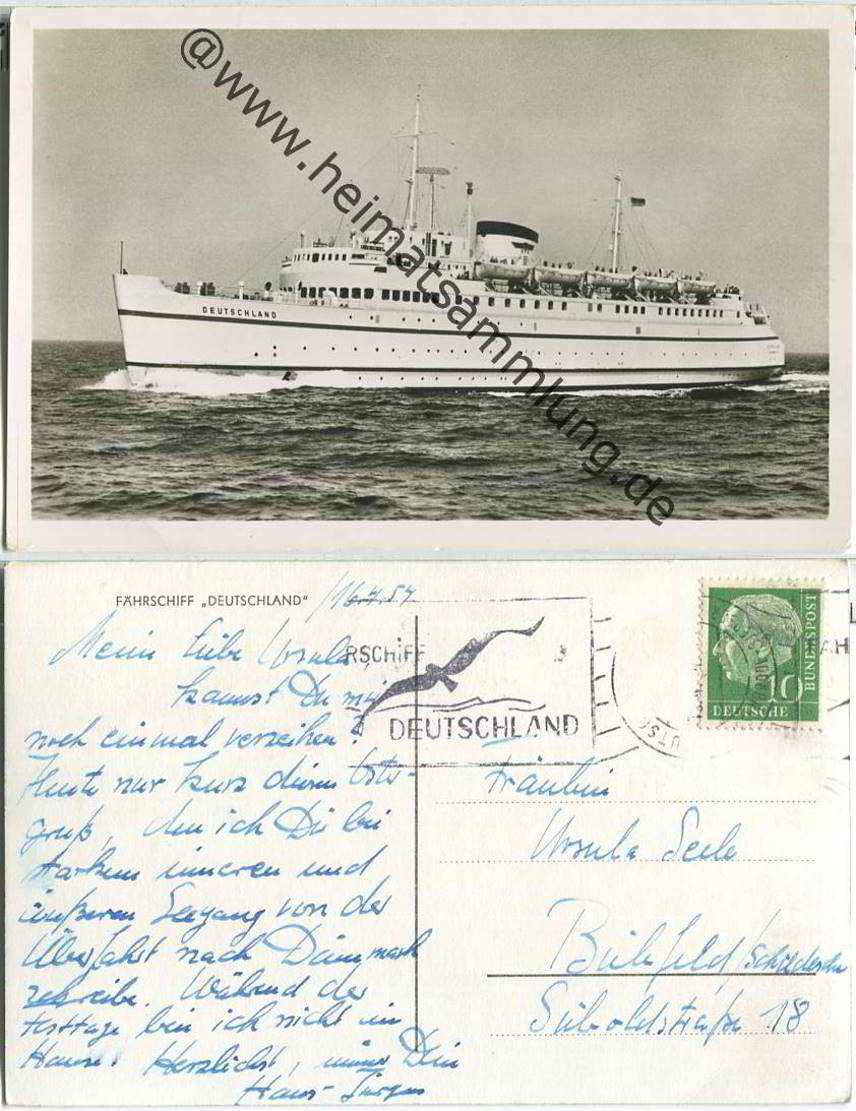 @www.heimatsammlung.de
DEUTSCHLAND
FÄHRSCHIFF „DEUTSCHLAND"
Meine liebe Ursula
kannst Du mir
noch einmal verzeihen?
Heute nur kurz diesen Oster-
gruß, den ich Dir bei
starkem inneren und
äußeren Seegang von der
Überfahrt nach Dänemark
schreibe. Während der
Festtage bin ich nicht im
Hause. Herzlichst, immer Dein
Hans-Jürgen
RSCHIFF
DEUTSCHLAND
10
DEUTSCHE
BUNDESPOST
Fräulein
Ursula Seele
Bielefeld/Schildesche
Süboldstraße 18